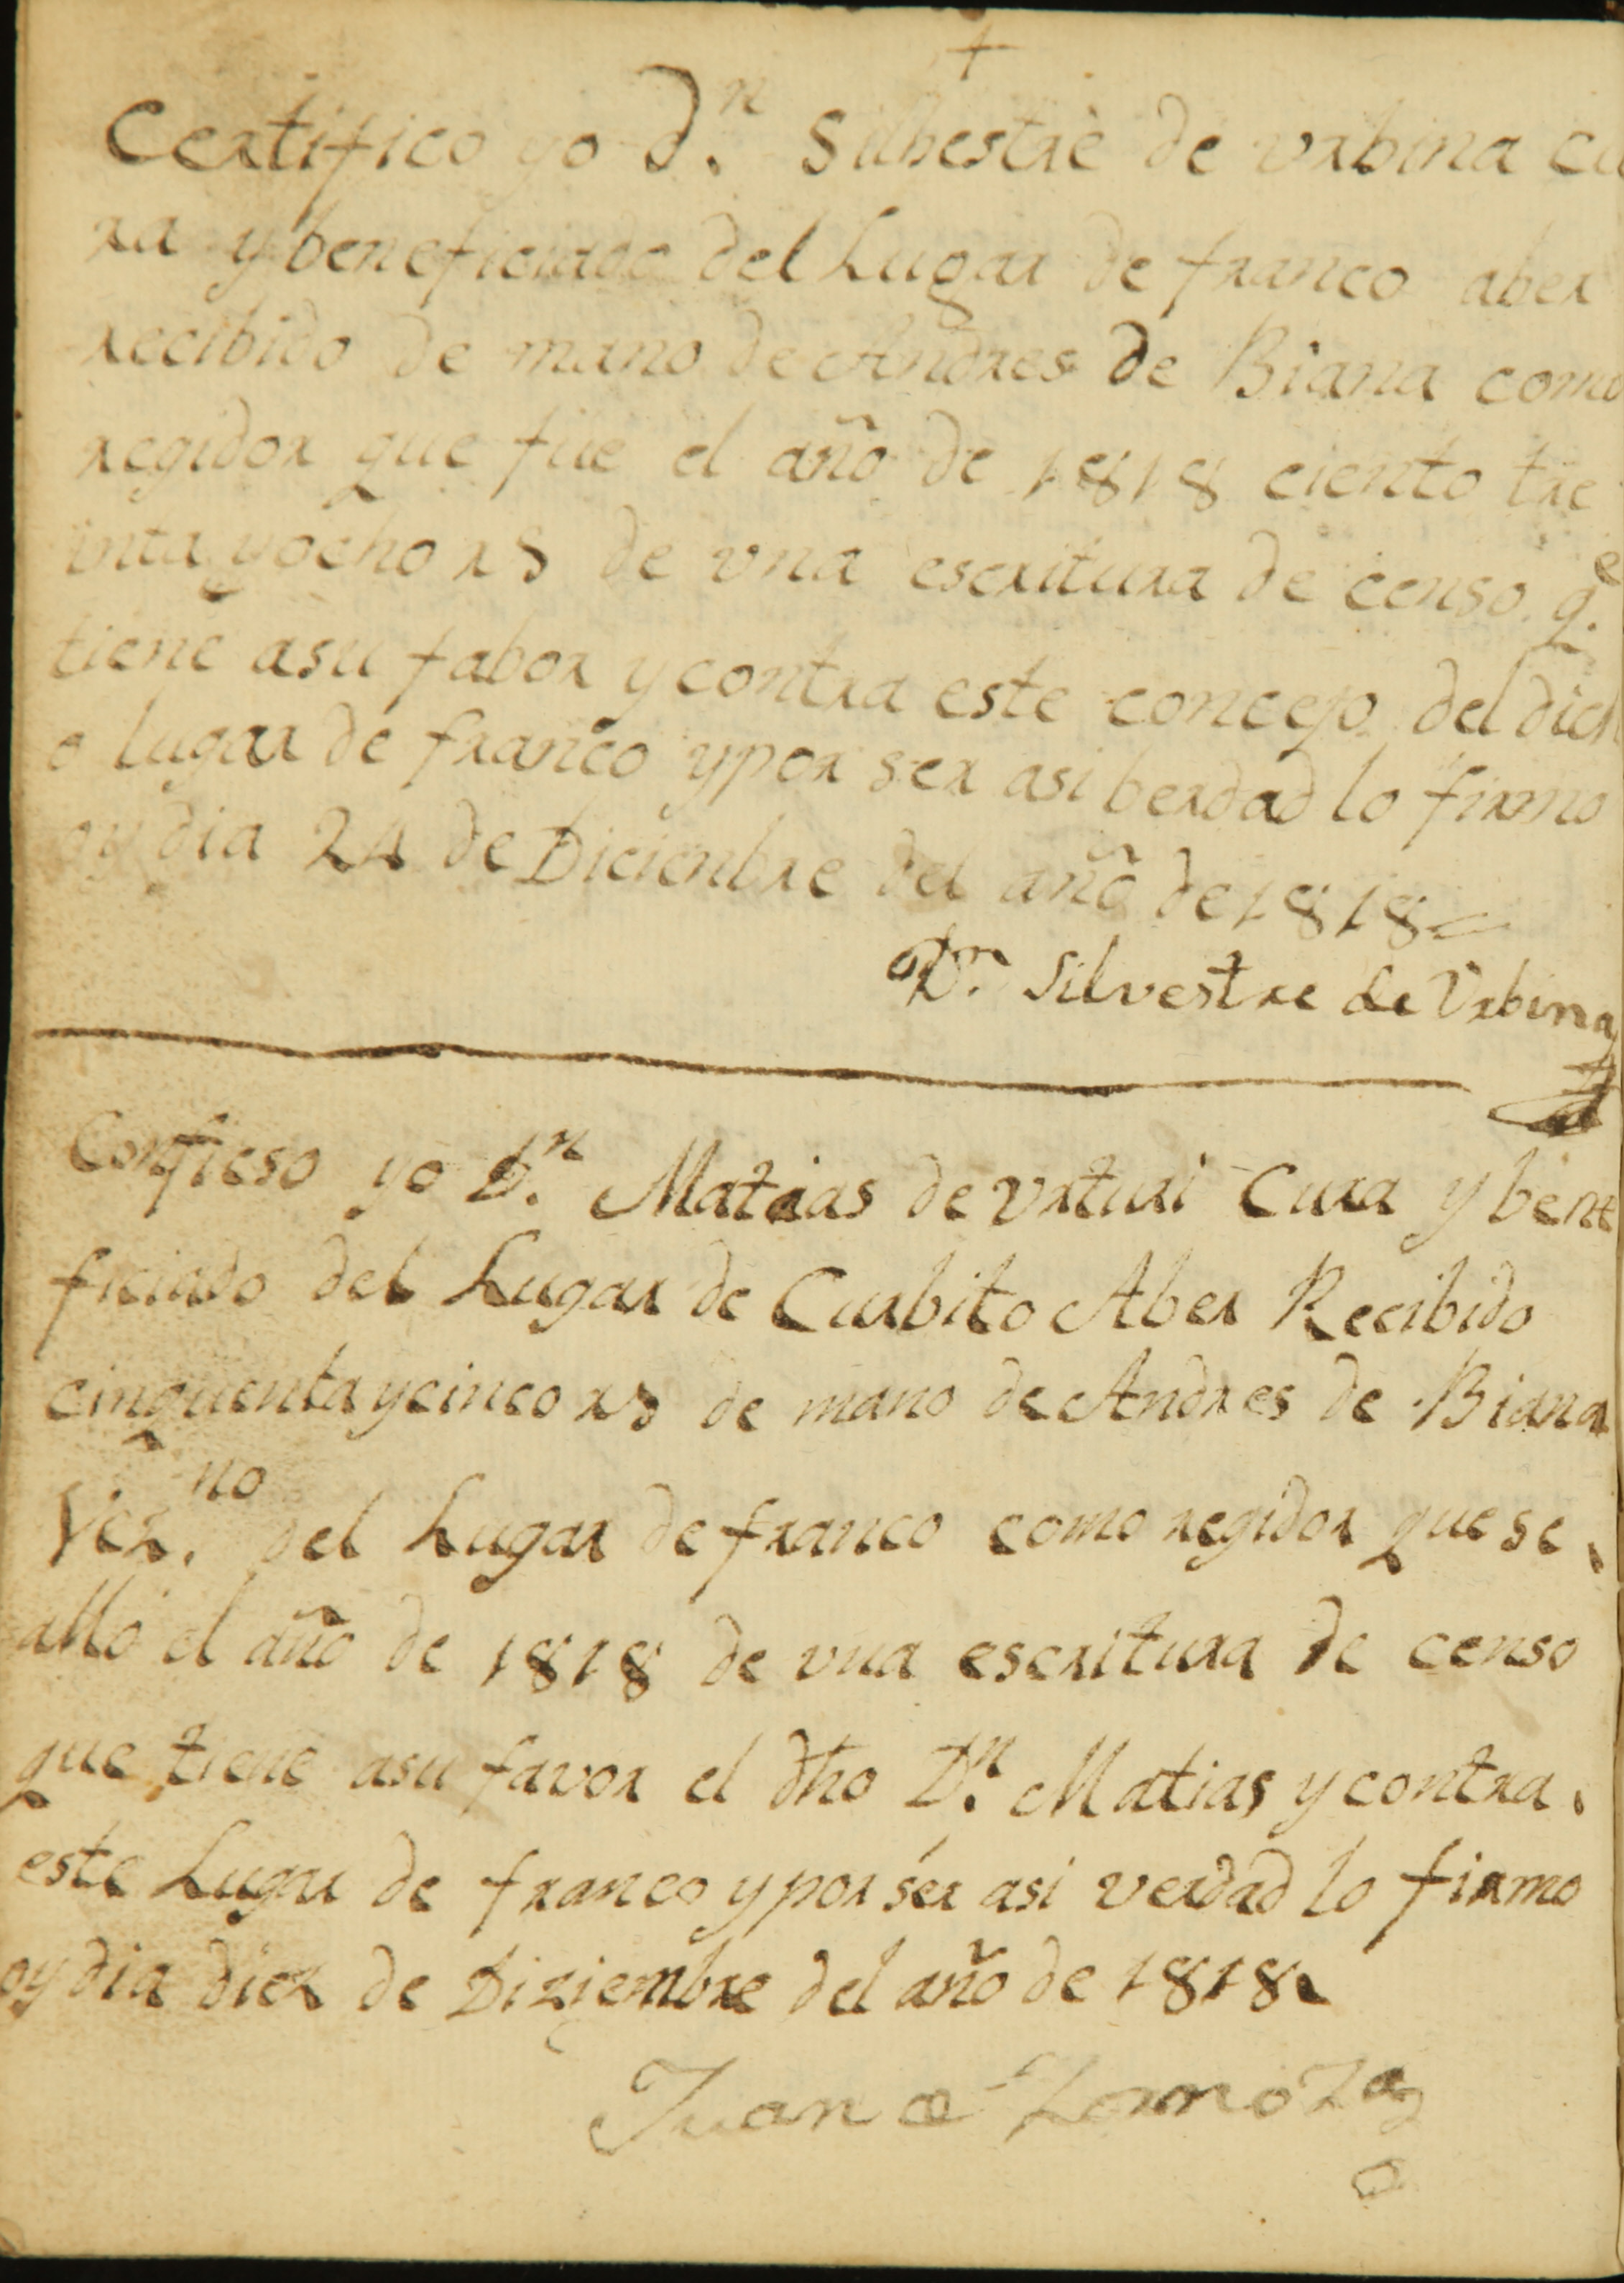 +
Certifico yo d.n Silbestre de vrbina cu
ra y beneficiado del Lugar de franco aber
recibido de mano de Andres de Biana como
regidor que fue el año de 1818 ciento tre
inta yocho rs de vna escritura de censo q.e
tiene asu fabor y contra este concejo del dich
o lugar de franco ypor ser asi berdad lo firmo
oy dia 24 de Dicienbre del año de 1818
Dn. Silvestre de Vrbina
Confieso yo D.n Matias de vrturi Cura y bene
ficiado del Lugar de Curbito Aber Recibido
cinquenta ycinco rs de mano de Andres de Biana
Vez.no del Lugar de franco como regidor que se
alló el año de 1818 de vna escritura de censo
que tiene asu favor el dho D.n Matias y contra
este Lugar de franco y por ser asi verdad lo firmo
oy dia diez de Diziembre del año de 1818.
Juan de